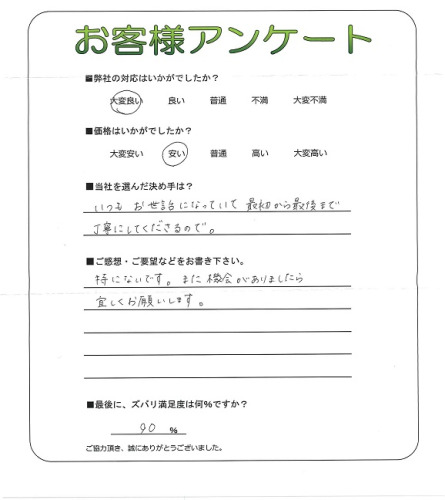 お客様アンケート
■弊社の対応はいかがでしたか?
大変良い 良い 普通 不満 大変不満
■価格はいかがでしたか?
大変安い 安い 普通 高い 大変高い
■当社を選んだ決め手は?
いつも お世話になっていて 最初から最後まで
丁寧にしてくださるので。
■ご感想・ご要望などをお書き下さい。
特にないです。また機会がありましたら
宜しくお願いします。
■最後に、ズバリ満足度は何%ですか?
90 %
ご協力頂き、誠にありがとうございました。